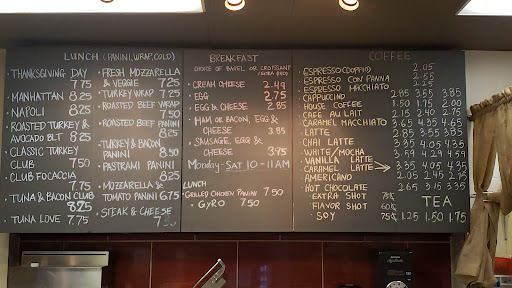 LUNCH (PANINI, WRAP, COLD)
THANKSGIVING DAY
7.75
MANHATTAN 8.25
NAPOLI 8.25
ROASTED TURKEY &
AVOCADO BLT 8.25
CLASSIC TURKEY
CLUB 7.50
CLUB FOCACCIA
8.25
TUNA & BACON CLUB
8.25
TUNA LOVE 7.75
FRESH MOZZARELLA
& VEGGIE 7.25
TURKEY WRAP 7.25
ROASTED BEEF WRAP
7.50
ROASTED BEEF PANINI
8.25
TURKEY & BACON
PANINI 8.50
PASTRAMI PANINI
8.25
MOZZARELLA &
TOMATO PANINI 6.75
STEAK & CHEESE
BREAKFAST
CHOICE OF BAGEL OR CROISSANT
CREAM CHEESE 2.49
EGG 2.75
EGG & CHEESE 2.85
HAM OR BACON, EGG &
CHEESE 3.85
SAUSAGE, EGG &
CHEESE 3.75
MONDAY-SAT 10-11AM
LUNCH
GRILLED CHICKEN PANINI 7.50
GYRO 7.50
COFFEE
ESPRESSO 2.05
ESPRESSO CON PANNA 2.55
ESPRESSO MACCHIATO 2.25
CAPPUCCINO 2.85 3.55 3.85
HOUSE COFFEE 1.50 1.75 2.00
CAFE AU LAIT 2.15 2.40 2.75
CARAMEL MACCHIATO 3.65 4.35 4.65
LATTE 2.85 3.55 3.85
CHAI LATTE 3.35 4.05 4.35
WHITE/MOCHA 3.59 4.29 4.59
VANILLA LATTE
CARAMEL LATTE 3.35 4.05 4.35
AMERICANO 2.05 2.45 2.75
HOT CHOCOLATE 2.65 3.15 3.35
EXTRA SHOT 75¢
FLAVOR SHOT 60¢
SOY 75¢
TEA
1.25 1.50 1.75